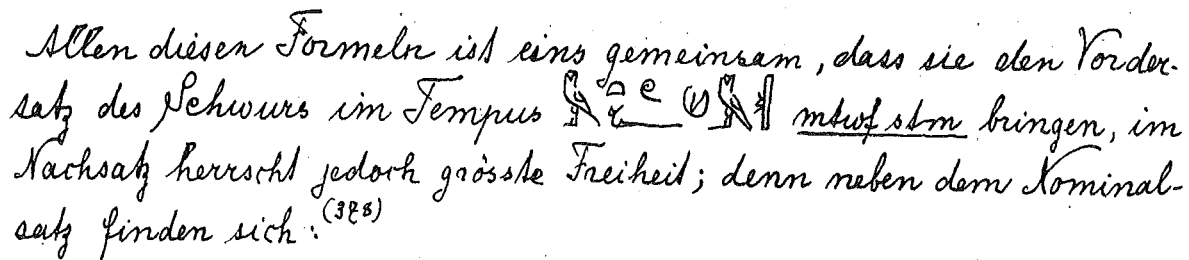 Allen diesen Formeln ist eins gemeinsam, dass sie den Vorder-
satz des Schwurs im Tempus mtwf stm bringen, im
Nachsatz herrscht jedoch grösste Freiheit; denn neben dem Nominal-
satz finden sich: (378)